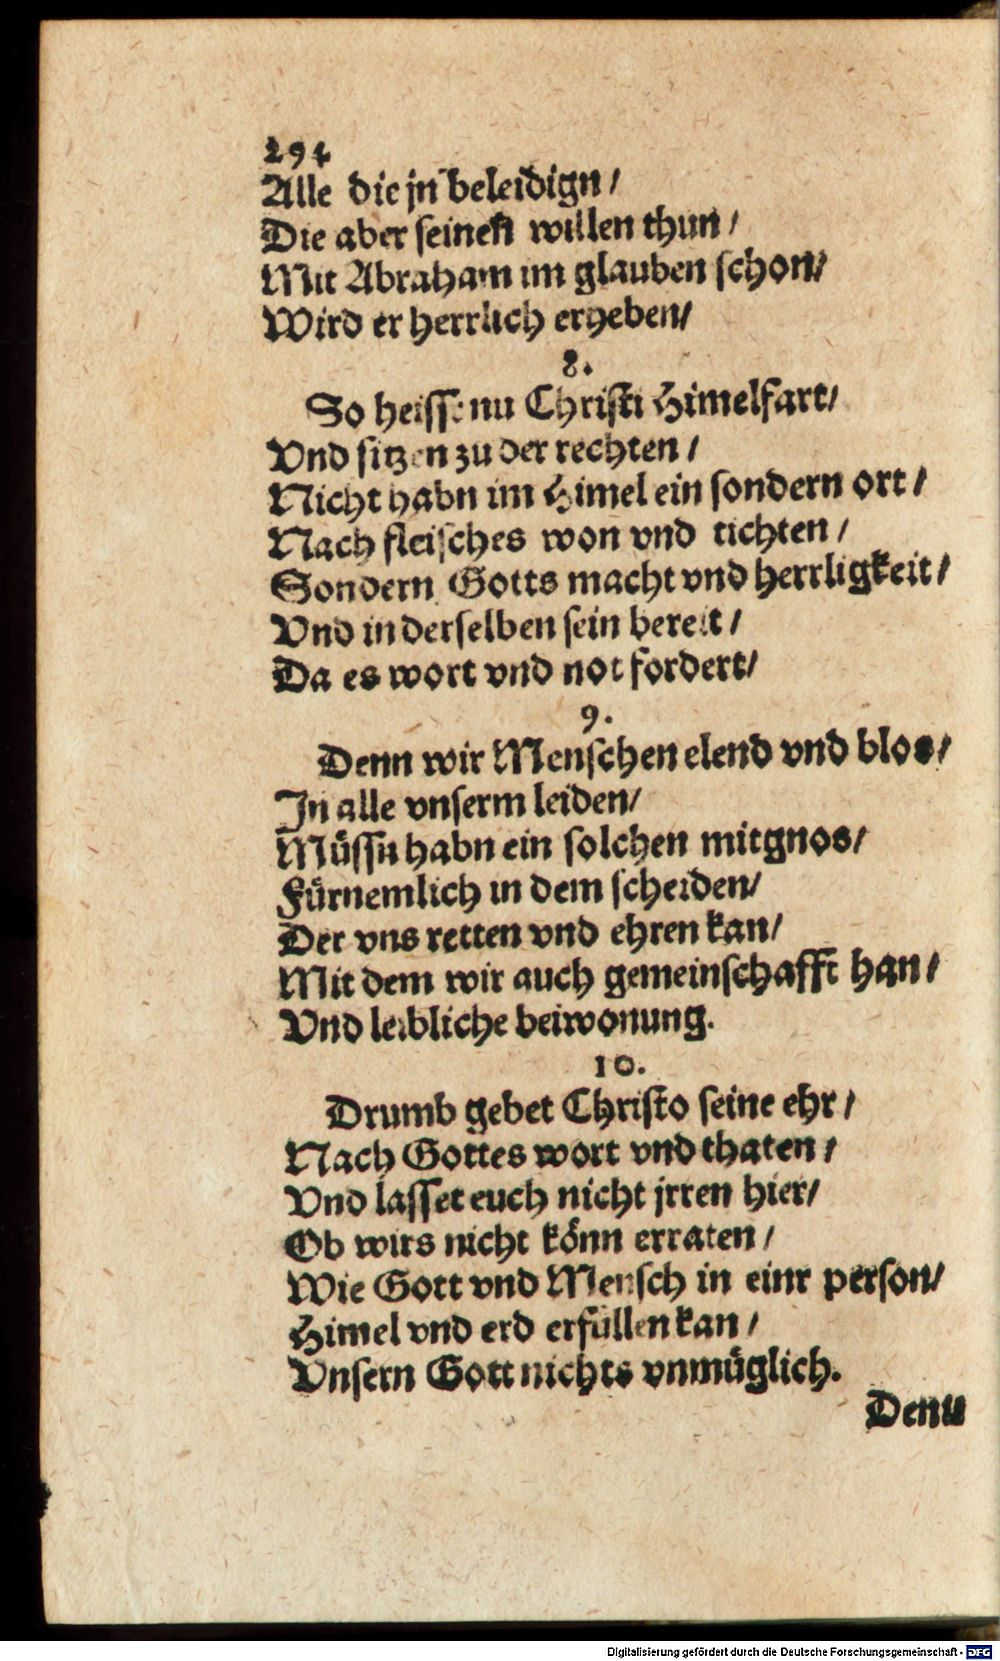 294
Alle die jn beleidign /
Die aber seinen willen thun /
Mit Abraham im glauben schon /
Wird er herrlich erheben /
8.
So heisst nu Christi Himelfart /
Vnd sitzen zu der rechten /
Nicht habn im Himel ein sondern ort /
Nach fleisches won vnd tichten /
Sondern Gotts macht vnd herrligkeit /
Vnd in derselben sein bereit /
Da es wort vnd not fordert /
9.
Denn wir Menschen elend vnd blos /
In alle vnserm leiden /
Müssn habn ein solchen mitgnos /
Fürnemlich in dem scheiden /
Der vns retten vnd ehren kan /
Mit dem wir auch gemeinschafft han /
Vnd leibliche beiwonung.
10.
Drumb gebet Christo seine ehr /
Nach Gottes wort vnd thaten /
Vnd lasset euch nicht jrren hier /
Ob wirs nicht könn erraten /
Wie Gott vnd Mensch in einr person /
Himel vnd erd erfüllen kan /
Vnsern Gott nichts vnmüglich.
Denn
Digitalisierung gefördert durch die Deutsche Forschungsgemeinschaft - DFG